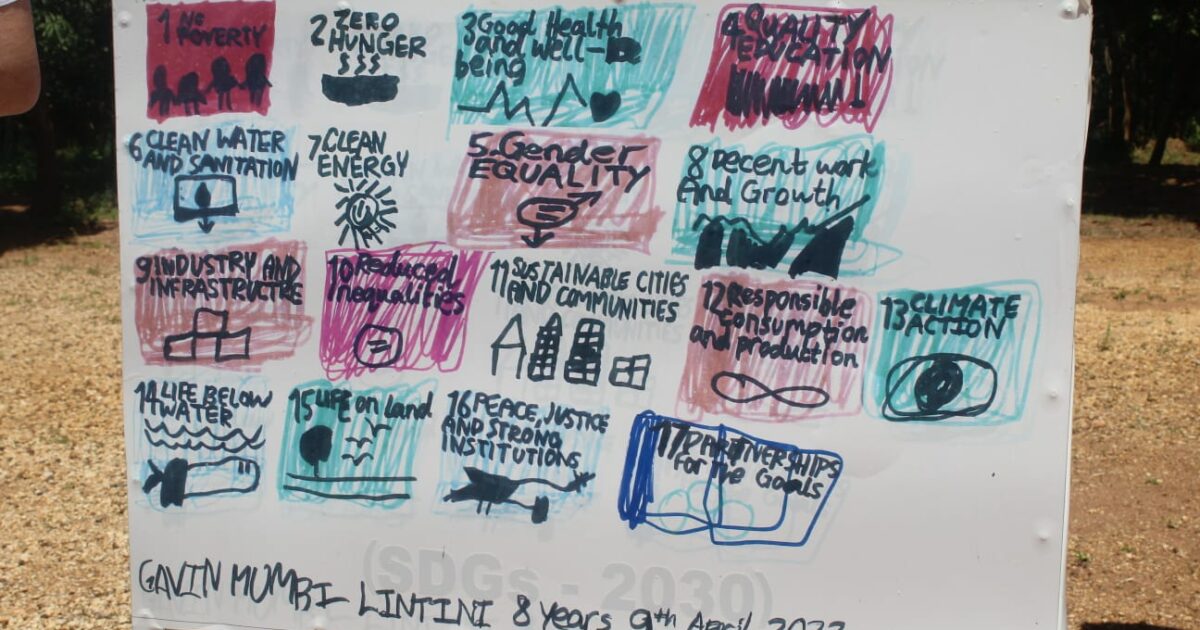 1 NO
POVERTY
2 ZERO
HUNGER
3 Good Health
and well-
being
4 QUALITY
EDUCATION
6 CLEAN WATER
AND SANITATION
7 CLEAN
ENERGY
5. Gender
EQUALITY
8 Decent work
And Growth
9 INDUSTRY AND
INFRASTRUCTRE
10 Reduced
Inequalities
11 SUSTAINABLE CITIES
AND COMMUNITIES
12 Responsible
consumption
and production
13 CLIMATE
ACTION
14 LIFE BELOW
WATER
15 LIFE on land
16 PEACE, JUSTICE
AND STRONG
INSTITUTIONS
17 PARTNERSHIPS
For The Goals
(SDGs - 2030)
GAVIN MUMBI LINTINI 8 years 9th April